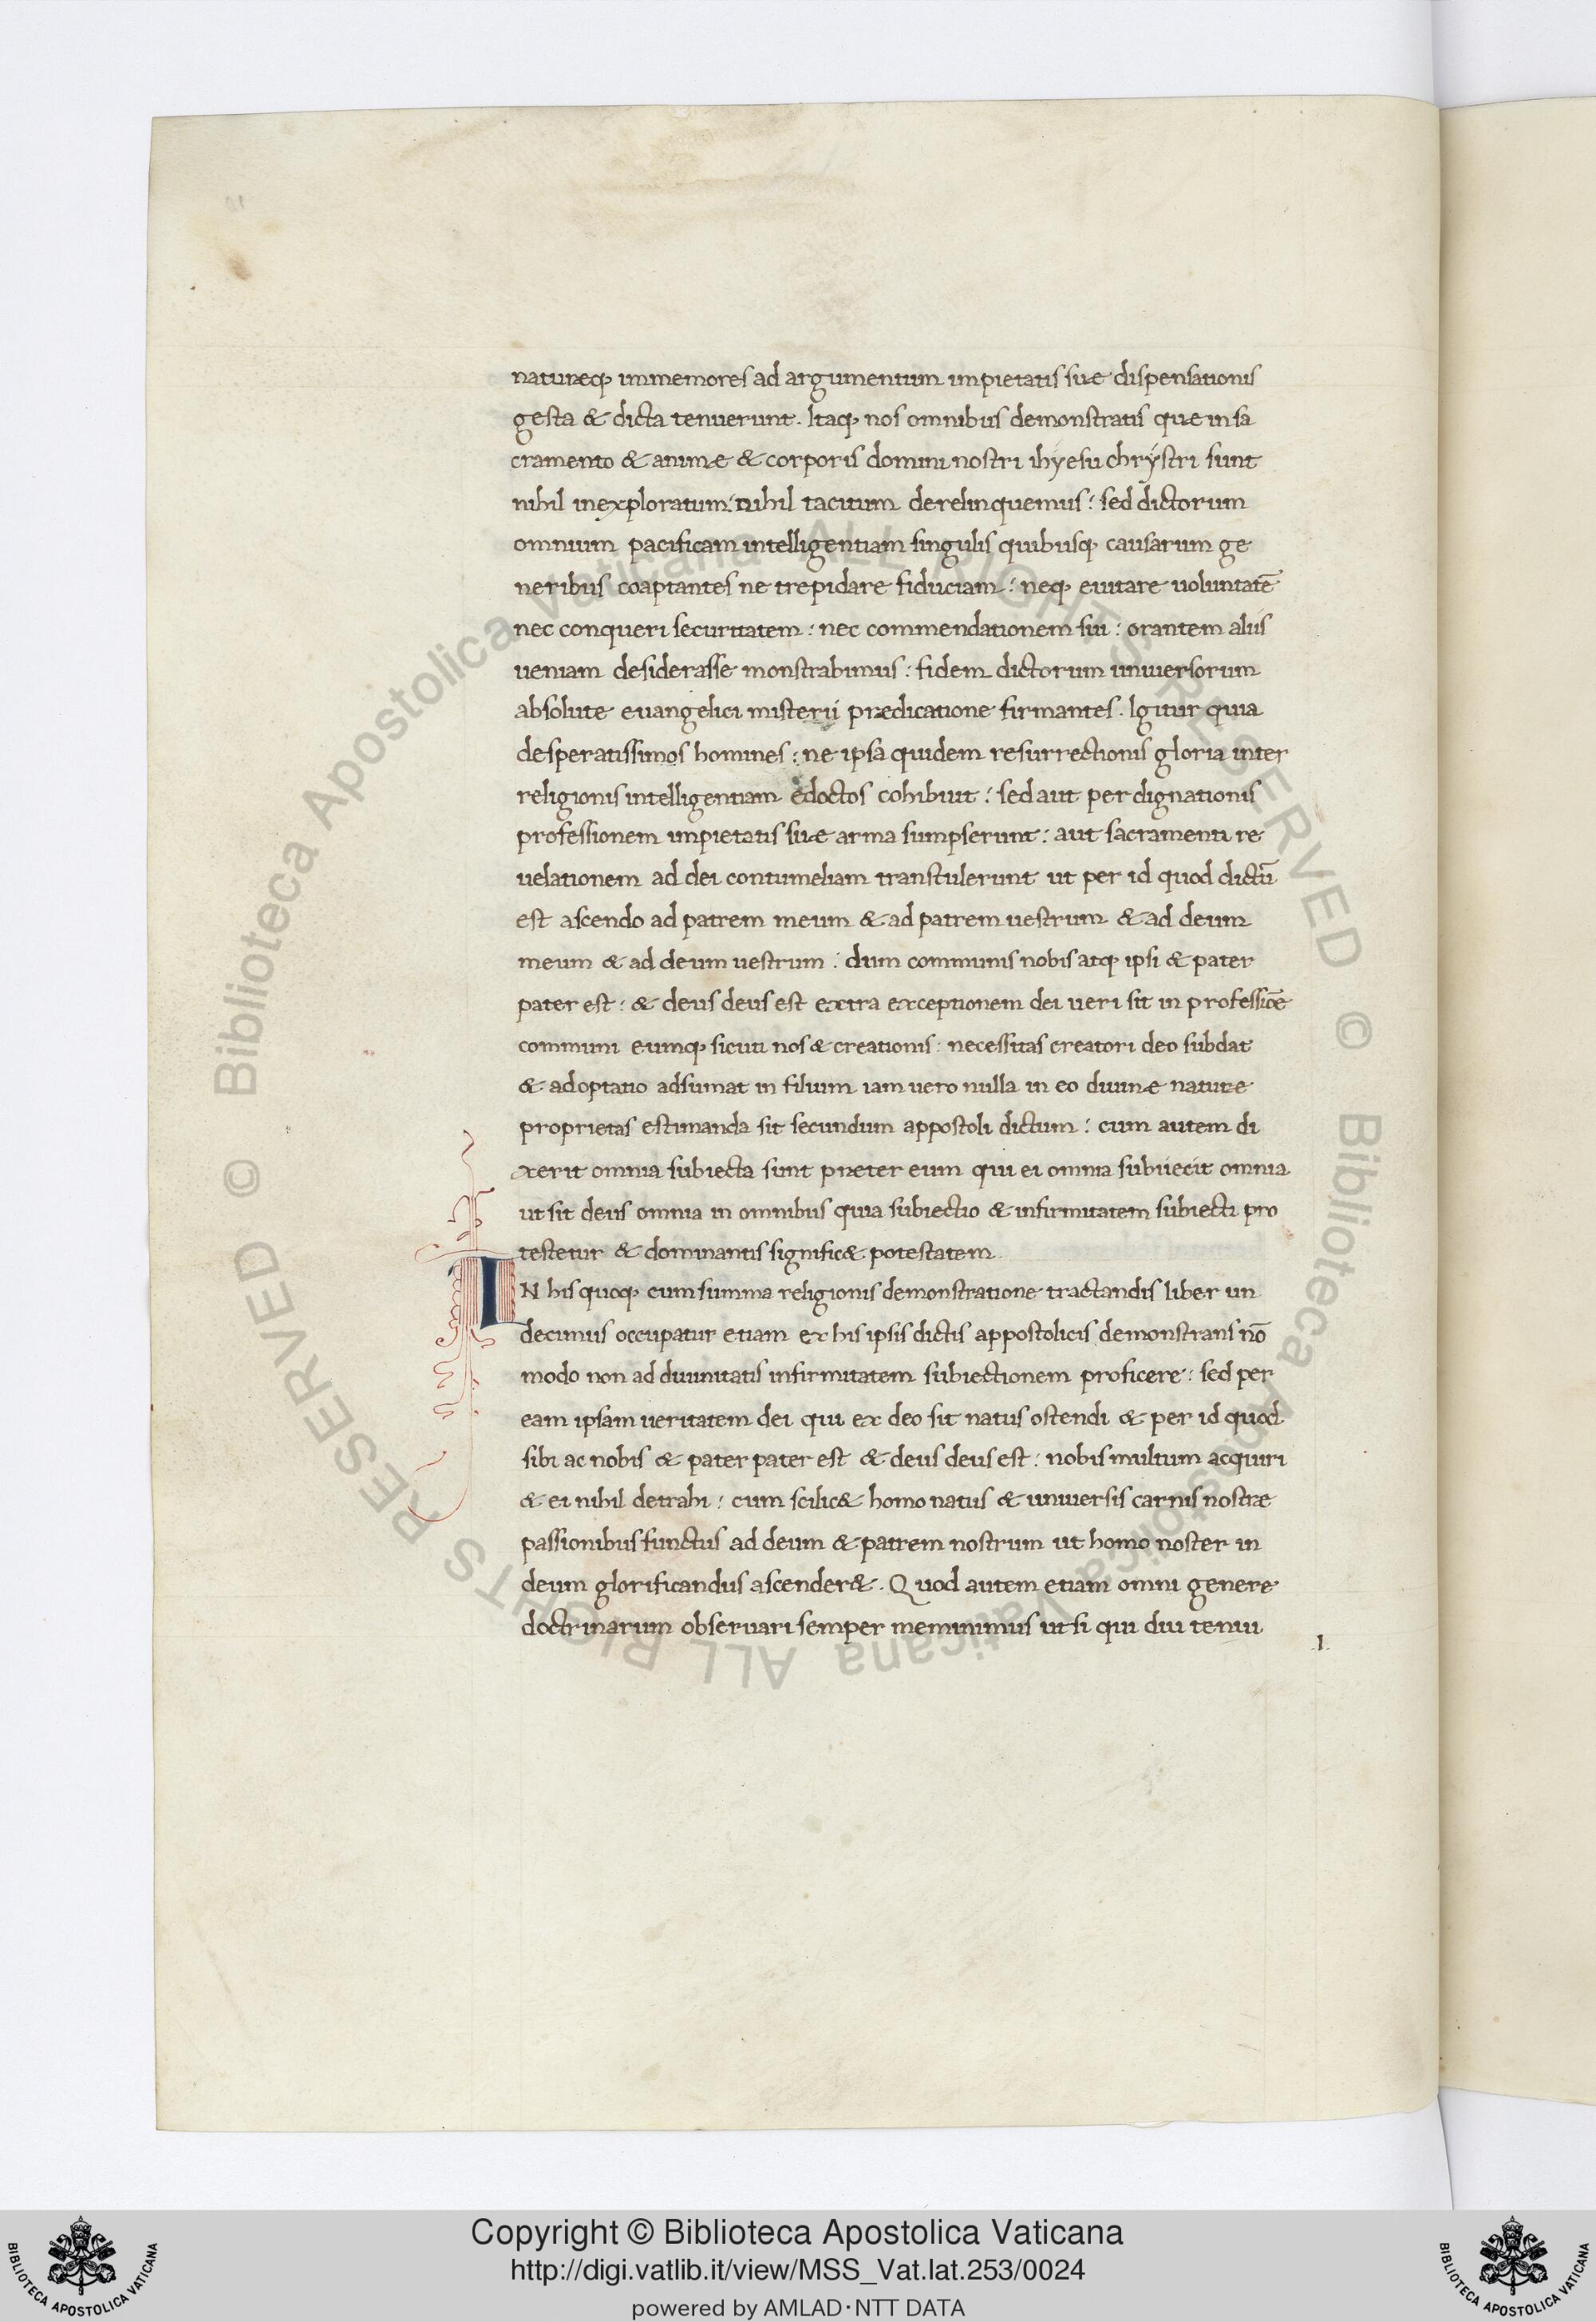 naturæq; immemores ad argumentum impietatis suæ dispensationis
gesta & dicta tenuerunt. Itaq; nos omnibus demonstratis quæ in sa
cramento & animæ & corporis domini nostri ihyesu chrystri sunt
nihil inexploratum: nihil tacitum derelinquemus: sed dictorum
omnium pacificam intelligentiam singulis quibusq; causarum ge
neribus coaptantes ne trepidare fiduciam: neq; euitare uoluntatē
nec conqueri securitatem: nec commendationem sui: orantem aliis
ueniam desiderasse monstrabimus: fidem dictorum uniuersorum
absolute euangelici misterii prædicatione firmantes. Igitur quia
desperatissimos homines: ne ipsa quidem resurrectionis gloria inter
religionis intelligentiam edoctos cohibuit: sed aut per dignationis
professionem impietatis suæ arma sumpserunt: aut sacramenti re
uelationem ad dei contumeliam transtulerunt ut per id quod dictū
est ascendo ad patrem meum & ad patrem uestrum & ad deum
meum & ad deum uestrum: dum communis nobis atq; ipsi & pater
pater est: & deus deus est extra exceptionem dei ueri sit in professiōe
communi eumq; sicuti nos & creationis: necessitas creatori deo subdat
& adoptatio adsumat in filium iam uero nulla in eo diuinæ naturæ
proprietas estimanda sit secundum appostoli dictum: cum autem di
xerit omnia subiecta sunt præter eum qui ei omnia subiiecit omnia
ut sit deus omnia in omnibus quia subiectio & infirmitatem subiecti pro
testetur & dominantis signific& potestatem
IN his quoq; cum summa religionis demonstratione tractandis liber un
decimus occupatur etiam ex his ipsis dictis appostolicis demonstrans nō
modo non ad diuinitatis infirmitatem subiectionem proficere: sed per
eam ipsam ueritatem dei qui ex deo sit natus ostendi & per id quod
sibi ac nobis & pater pater est & deus deus est: nobis multum acquiri
& ei nihil detrahi: cum scilic& homo natus & uniuersis carnis nostræ
passionibus functus ad deum & patrem nostrum ut homo noster in
deum glorificandus ascender&. Quod autem etiam omni genere
doctrinarum obseruari semper meminimus ut si qui diu tenui
1
© Biblioteca Apostolica Vaticana ALL RIGHTS RESERVED
© Biblioteca Apostolica Vaticana ALL RIGHTS RESERVED
Copyright © Biblioteca Apostolica Vaticana
http://digi.vatlib.it/view/MSS_Vat.lat.253/0024
powered by AMLAD·NTT DATA
BIBLIOTECA APOSTOLICA VATICANA
BIBLIOTECA APOSTOLICA VATICANA